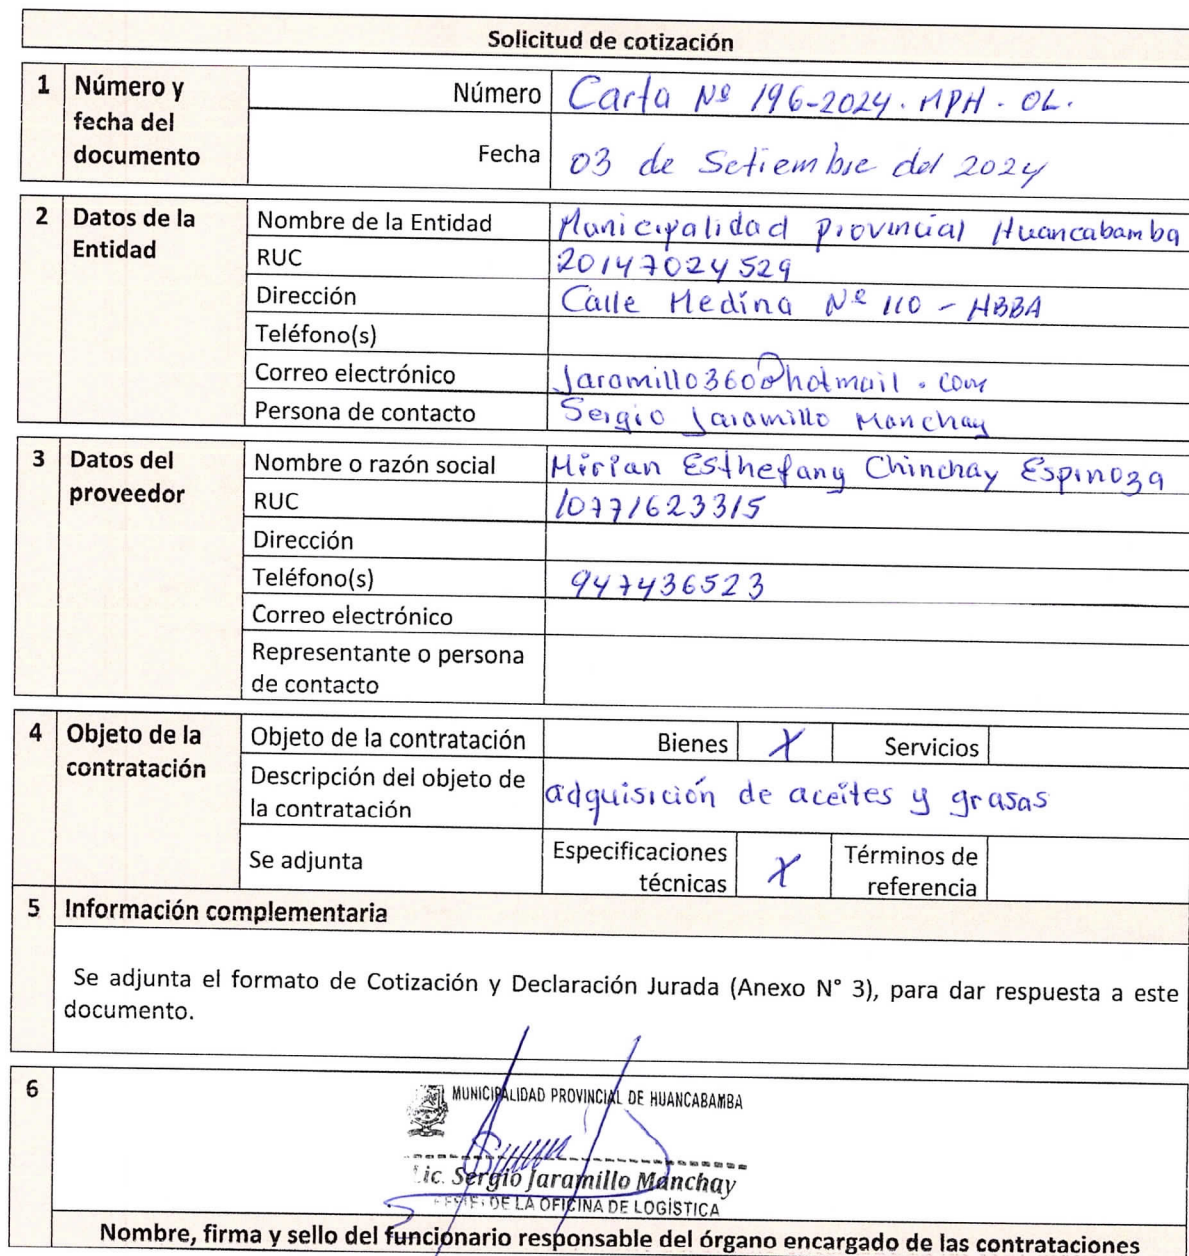 Solicitud de cotización
1 Número y fecha del documento
Número Carta Nº 196-2024. MPH. OL.
Fecha 03 de Setiembre del 2024
2 Datos de la Entidad
Nombre de la Entidad Municipalidad provincial Huancabamba
RUC 20147024529
Dirección Calle Medina Nº 110 - HBBA
Teléfono(s)
Correo electrónico Jaramillo360@hotmail.com
Persona de contacto Sergio Jaramillo Manchay
3 Datos del proveedor
Nombre o razón social Mirian Esthefany Chinchay Espinoza
RUC 10771623315
Dirección
Teléfono(s) 947436523
Correo electrónico
Representante o persona
de contacto
4 Objeto de la contratación
Objeto de la contratación Bienes X Servicios
Descripción del objeto de
la contratación adquisición de aceites y grasas
Se adjunta Especificaciones técnicas X Términos de referencia
5 Información complementaria
Se adjunta el formato de Cotización y Declaración Jurada (Anexo N° 3), para dar respuesta a este
documento.
6
MUNICIPALIDAD PROVINCIAL DE HUANCABAMBA
Lic. Sergio Jaramillo Manchay
DE LA OFICINA DE LOGÍSTICA
Nombre, firma y sello del funcionario responsable del órgano encargado de las contrataciones